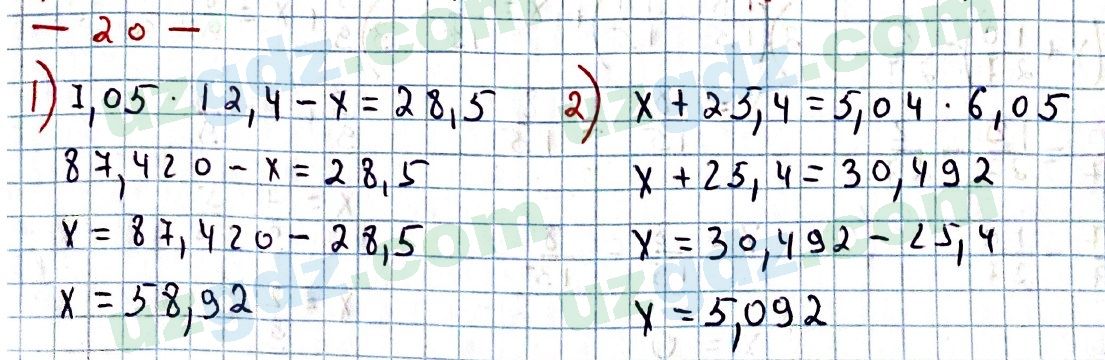 — 20 —
1) 7,05 · 12,4 – x = 28,5
87,420 – x = 28,5
x = 87,420 – 28,5
x = 58,92
2) x + 25,4 = 5,04 · 6,05
x + 25,4 = 30,492
x = 30,492 – 25,4
x = 5,092
uzgdz.com
uzgdz.com
uzgdz.com
uzgdz.com